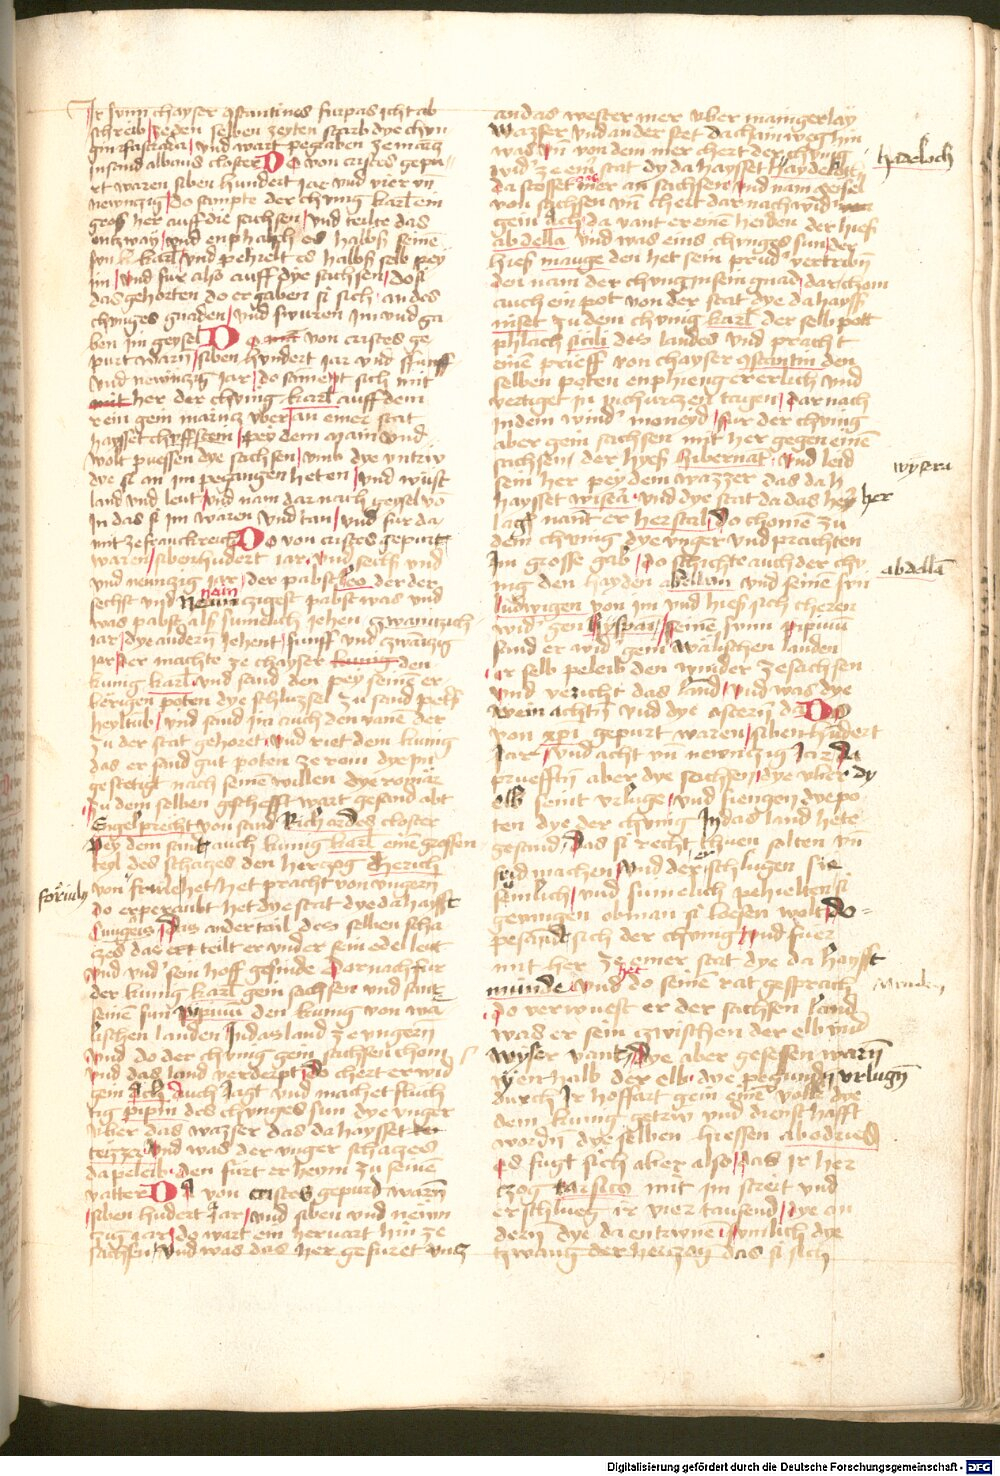 Ir sunn chayser Constantines furpas icht ab
schreib zeden selben zeyten starb dye chun
gin fastrada vnd wart pegraben ze maintz
in sand albans closter Do von cristes gepu
rt waren siben hundert jar vnd vier vn
newnczig do sampte der chunig karl ein
gros her auff die sachsen vnd teilte das
entzway vnd enphalch es halbs seinē
sun karl vnd pehielt es halbs selb pey
im vnd fur also auff dye sachsen do si
das gehorten do ergaben si sich an des
chuniges gnaden vnd swuren im vnd ga
ben im geysel Do von cristes ge
purt warn siben hundert jar vnd funff
vnd newnczig jar do sament sich mit
her der chunig karl auff dem
rein gein maincz vber an einer stat
haysset chuffstein pey dem main vnd
wolt puessen dye sachsen vmb dye vntriw
dye si an im pegangen heten vnd wust
land vnd leut vnd nam darnach geysel von
in das si im waren vnd tan vnd fur da
mit ze franckreich Do von cristes gepurt
waren siben hundert jar vnd sechs vnd
vnd newnzig jar der pabst leo der der
sechst vnd newnczigest pabst was vnd
was pabst als sumelich jehen zwainczich
jar dye andern jehent funff vnd zwainzig
jar der machte ze chayser kunig den
kunig karl vnd sand den pey seinē er
bērigen poten dye schluzsel zu sand peters
heyltub vnd sand im auch den vanē der
zu der stat gehoret vnd riet dem kunig
das er sand gut poten ze rom dye im
gestetigt nach seinē willen dye romār
zu dem selben geschefft wart gesand abt
Engelprecht von sand Richardes closter
Pey dem sant auch kunig karl einē grossen
teyl des schatzes den herczog Herich
von friule het pracht von vngern
do er peraubt het dye stat dye da haysst
das ander tail des selben scha
czes das teilt er vnder sein edelleut
vnd vnd sein hoff gesinde Darnach fur
der kunig karl gein sachsen vnd sant
seinē sun pipinū den kunig von wa
lischen landen In das land ze vngern
vnd do der chunig gein sachsen chom
vnd das land verderpt do chert er wid
gein Ach Auch Jagt vnd machet fluch
tig pipin des chuniges sun dye vnger
vber das wazser das da haysset
tizza vnd was der vnger schaczes
da peleib den furt er heym zu seinē
vatter Do von cristes gepurd warn
siben hundert Jar vnd siben vnd newn
zig jar do wart ein heruart hin ze
sachsen vnd was das her gefuret vncz
foriuli
an das wester mer vber manigerlay
wazser vnd an der stet da chain weg hin
was vn von dem mer chert der chunig
wid ze einer stat dy da haysset haydeloch
da stosset das mer an sachsen vnd nam geisel
von sachsen vn chert darnach wid
gein ach da vant er einē heiden der hies
abdella vnd was eins chuniges sun der
hies mauge den het sein prud vertribn
den nam der chunig in sein gnad dar chom
auch ein pot von der stat dye da hayss
niset zu dem chunig karl der selb pott
phlach sicili des landes vnd pracht
einē prieff von chayser constantin den
selben poten enphieng er erlich vnd
vertiget in in churczen tagen Darnach
in dem wind moneyd fur der chunig
aber gein sachsen mit her gegen einē
sachsen der hyes hibernat vnd leid
sein her pey dem wazzer das da h
haysset wisera vnd dye stat da das her
lag nant er herstal Do chome zu
dem chunig dye vnger vnd prachten
Im grosse gab do schichte auch der chu
nig den hayden abdellam vnd seinē sun
ludwigen von im vnd hies sich cheren
wid gen hyspan seinē sunn pipinū
sand er wid gein walischen landen
er selb peleib den winder ze sachsen
vnd verricht das land vnd was dye
wein achtn vnd dye astern da Do
von xpi gepurt waren siben hundert
jar vnd acht vn newnczig jar da
prueften aber dye sachsen dye vber dy
elb seint vrluge vnd fiengen dye po
ten dye der chunig In das land hete
gesand das si recht thuen solten vn
frid machen vnd der erschlugen sie
semlich vnd sumelich pehielten si
gewingen ob man si losen wolt do
pesand sich der chunig vnd fuer
mit her ze einer stat dye da haysst
munde vnd do het seinē rat gesprach
do verwuest er der sachsen land
was er sein zwischen der elb vnd
wyser vant Dye aber gesessen warn
yenhalb der elb dye pegunden vrlugn
durch Ir hoffart gein einē volk dye
dem kunig getriw vnd diensthafft
wordn dye selben hiessen abodrier
es fugt sich aber also das ir her
czog tarsico mit im streit vnd
erschlueg ir vier tausend dye an
dern dye da entrunnē sumlich dye
twang der herczog das si sich
hadeloch
wysera
her
abdella
Digitalisierung gefördert durch die Deutsche Forschungsgemeinschaft - DFG